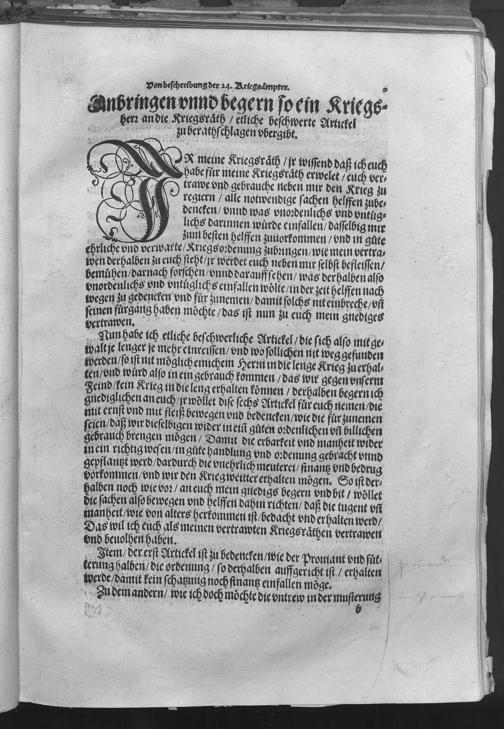 Von beschreibung der 24. Kriegsämpter.
Anbringen vnnd begern so ein Kriegs-
herr an die Kriegsräth / etliche beschwerte Artickel
zu berathschlagen vbergibt.
IR meine Kriegsräth / jr wissend daß ich euch
habe für meine Kriegsräth erwelet / euch ver-
trawe vnd gebrauche neben mir den Krieg zu
regiern / alle notwendige sachen helffen zube-
dencken / vnnd was vnordenlichs vnd vntüg-
lichs darinnen würde einfallen / dasselbig mir
zum besten helffen zuuorkommen / vnd in güte
ehrliche vnd verwarte / Kriegsordenung zubringen / wie mein vertra-
wen derhalben zu euch steht / jr werdet euch neben mir selbst befleissen /
bemühen / darnach forschen / vnnd darauff sehen / was derhalben also
vnordenlichs vnd vntüglichs einfallen wölte / in der zeit helffen nach
wegen zu gedencken vnd für zunemen / damit solchs nit einbreche / vñ
seinen fürgang haben möchte / das ist nun zu euch mein gnediges
vertrawen.
Nun habe ich etliche beschwerliche Artickel / die sich also mit ge-
walt je lenger je mehr einreissen / vnd wo sollichen nit weg gefunden
werden / so ist nit möglich einichem Herrn in die lenge Krieg zu erhal-
ten / vnd würd also in ein gebrauch kommen / das wir gegen vnserm
Feind / kein Krieg in die leng erhalten können / derhalben begern ich
gnediglichen an euch / jr wöllet dise sechs Artickel für euch nemen / die
mit ernst vnd mit fleiß bewegen vnd bedencken / wie die für zunemen
seien / daß wir dieselbigen wider in ein güten ordenlichen vñ billichen
gebrauch brengen mögen / Damit die erbarkeit vnd manheit wider
in ein richtig wesen / in güte handlung vnd ordenung gebracht vnnd
gepflantzt werd / dardurch die vnehrlich meuterei / finantz vnd bedrug
vorkommen / vnd wir den Krieg weitter erhalten mögen. So ist der-
halben noch wie vor / an euch mein gnedigs begern vnd bit / wöllet
die sachen also bewegen vnd helffen dahin richten / daß die tugent vñ
manheit / wie von alters herkommen ist / bedacht vnd erhalten werd /
Das wil ich euch als meinen vertrawten Kriegsräthen vertrawen
vnd beuolhen haben.
Item / der erst Artickel ist zu bedencken / wie der Prouiant vnd füt-
terung halben / die ordenung / so derhalben auffgericht ist / erhalten
werde / damit kein schatzung noch finantz einfallen möge.
Zu dem andern / wie ich doch möchte die vntrew in der musterung
b